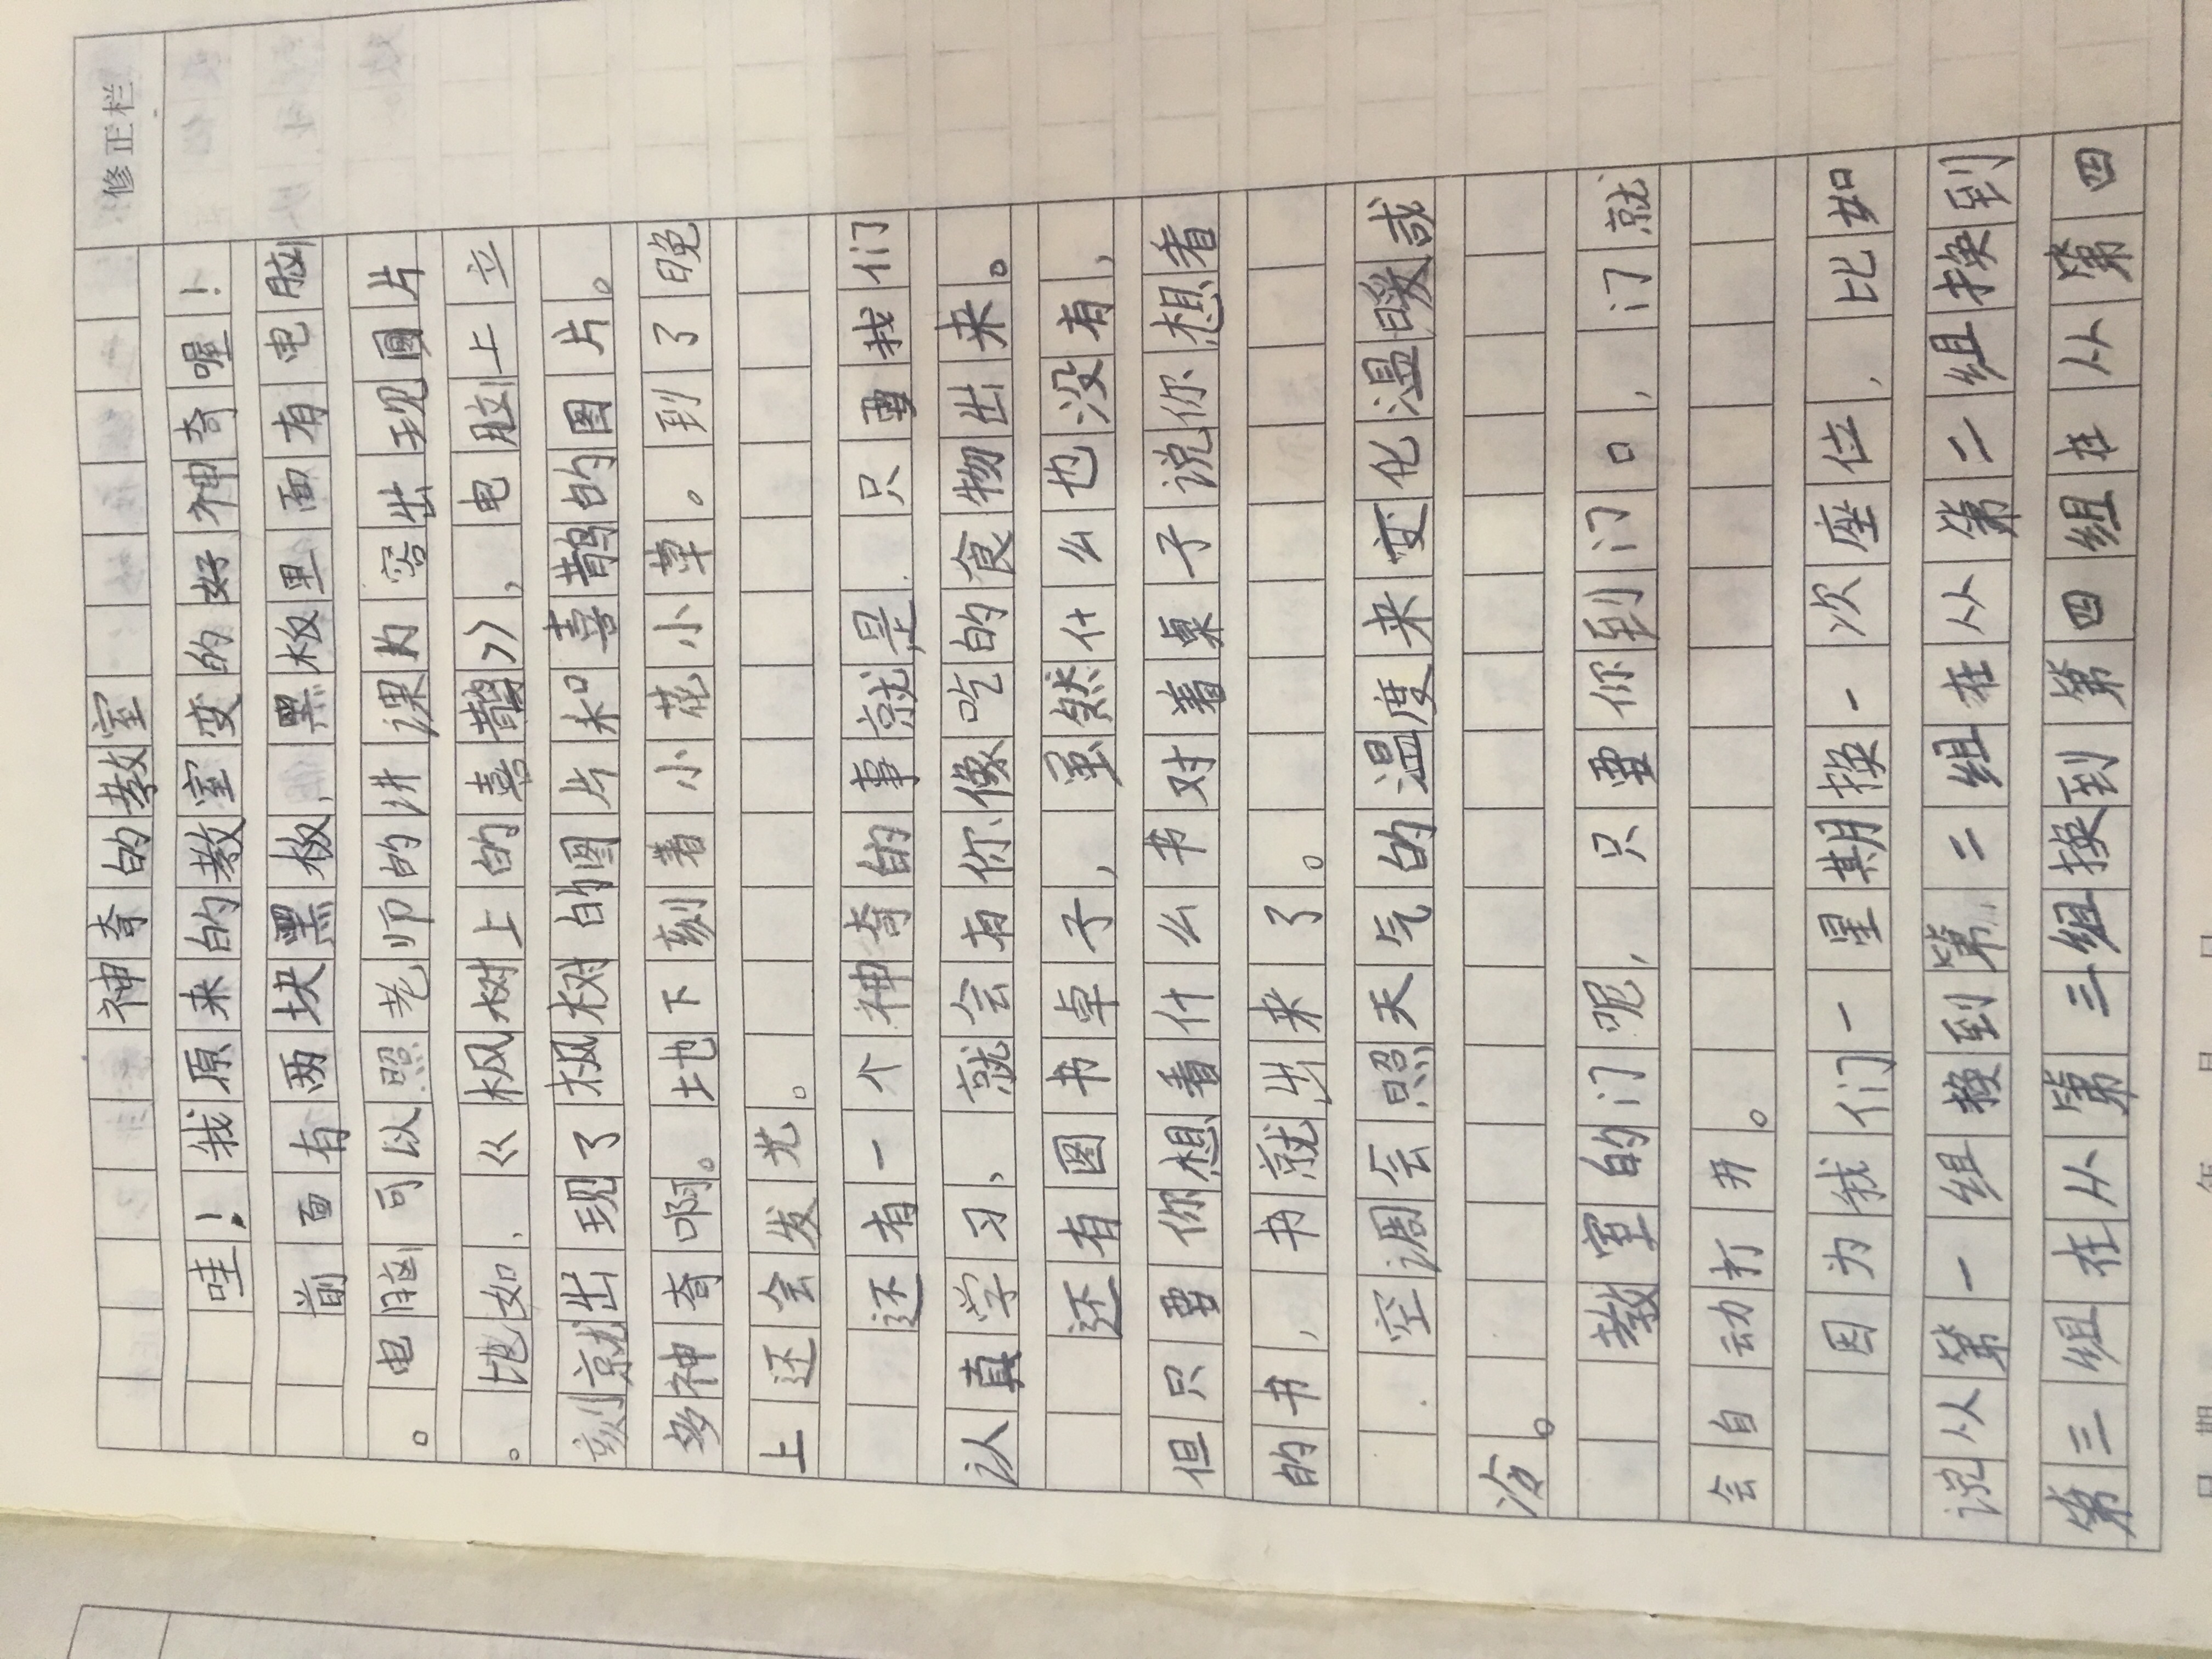 修正栏
神奇的教室
哇！我原来的教室变的好神奇喔！
前面有两块黑板，黑板里面有电脑
。电脑可以照老师的讲课内容出现图片
。比如，《枫树上的喜鹊》，电脑上立
刻就出现了枫树的图片和喜鹊的图片。
多神奇啊。土地下刻着小小花小草。到了晚
上还会发光。
还有一个神奇的事就是，只要我们
认真学习，就会有你像吃的食物出来。
还有图书卓子，虽然什么也没有，
但只要你想看什么书对着桌子说你想看
的书，书就出来了。
空调会照天气的温度来变化温暖或
冷。
教室的门呢，只要你到门口，门就
会自动打开。
因为我们一星期换一次座位，比如
说从第一组换到第二组在从第二组换到
第三组在从第三组换到第四组在从第四